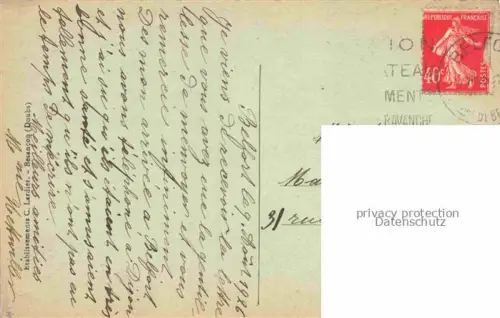 Belfort le 9 Août 1926
Je viens de recevoir la lettre
que vous avez eue la gentil-
lesse de m'envoyer et vous
remercie infiniment
Dès mon arrivée à Belfort
nous avons téléphoné à Dijon
et j'ai su qu'ils étaient en très
bonne santé et s'amusaient
tellement qu'ils n'ont pas eu
le temps de m'écrire
Meilleurs amitiés
Établissements C. Lardier - Besançon (Doubs)
REPUBLIQUE FRANÇAISE
40c
POSTES
ION
TEA
MENT
RAVANCHE
Ma
31 rue
privacy protection
VORBIDDEN.COM